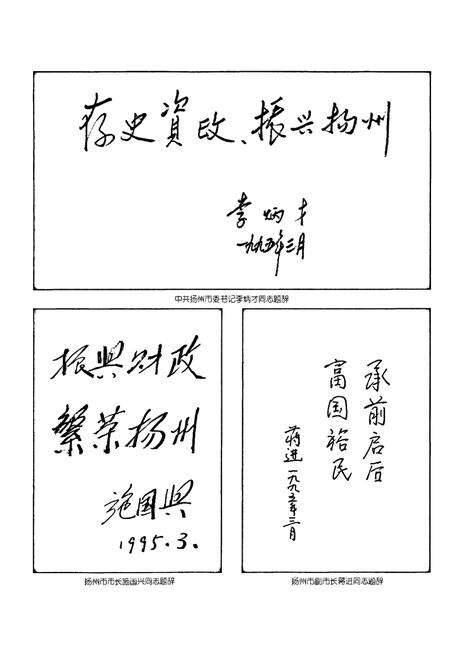 存史資政、振兴扬州
李炳才
一九九五年三月
中共扬州市委书记李炳才同志题辞
振興财政
繁荣扬州
施国興
1995.3.
扬州市市长施国兴同志题辞
承前启后
富国裕民
蒋进一九九五年三月
扬州市副市长蒋进同志题辞